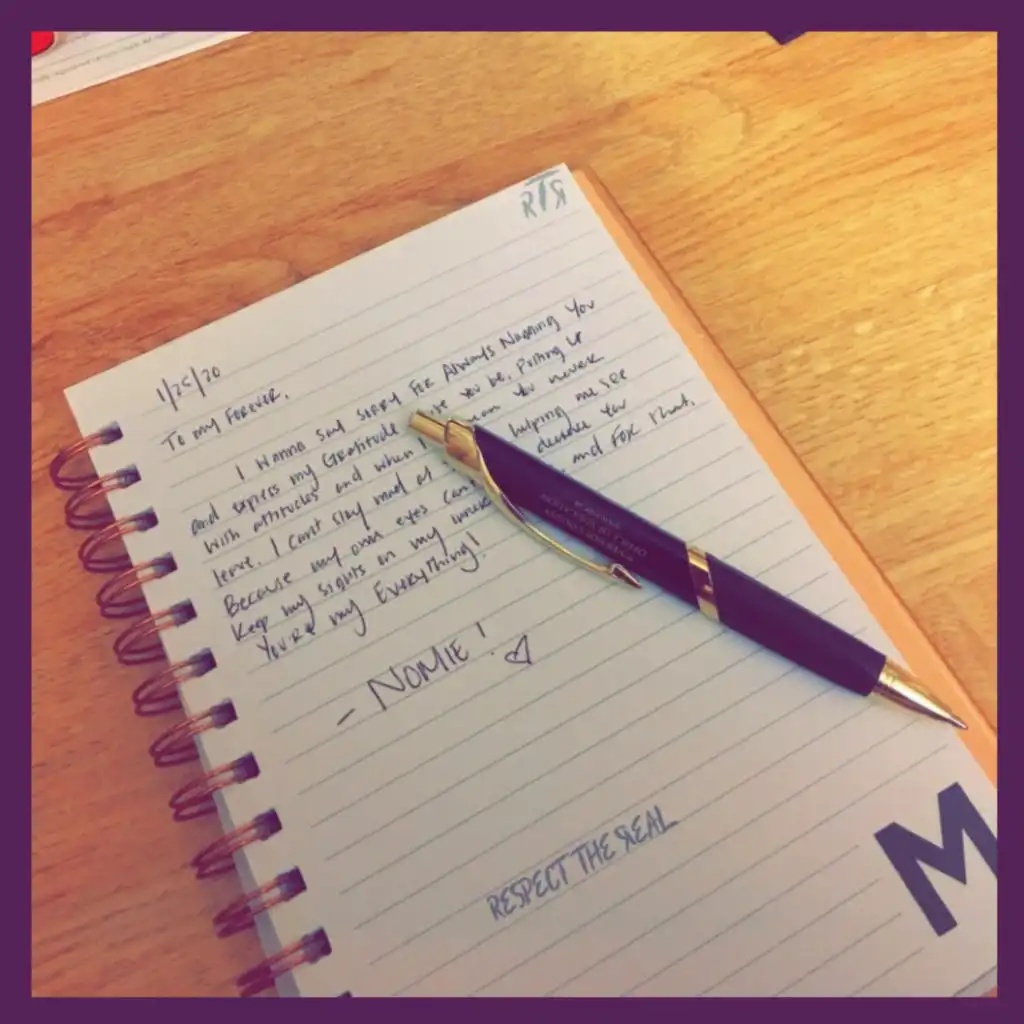 RTR
1/25/20
To my Forever,
I wanna say sorry For Always Nagging You
and express my Gratitude you be, Putting up
with attitudes and when I mean you never
leave. I can't stay mad at helping me see
Because my own eyes can't deserve you
Keep my sights on my and For that,
You're my Everything!
- NOMIE!
RESPECT THE REAL
M